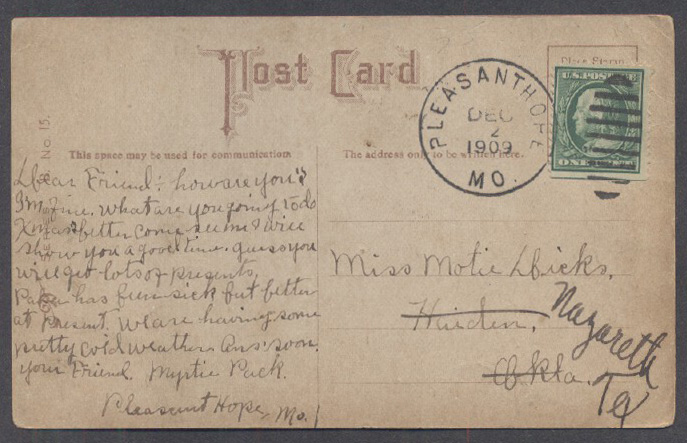 Post Card
Place Stamp
U.S. POSTAGE
PLEASANTHOPE
DEC
2
1909
MO.
No 15.
This space may be used for communication
The address only to be written here.
Dear Friend: how are you?
I'm fine. What are you going to do
Xmas better come see me I will
show you a good time. guess you
will get lots of presents,
Papa has been sick but better
at Present. We are having some
pretty cold weather. Ans. soon.
your Friend. Myrtie Pack.
Pleasant Hope, Mo.
Miss Motie Hicks,
Okla.
Nazareth
Tex